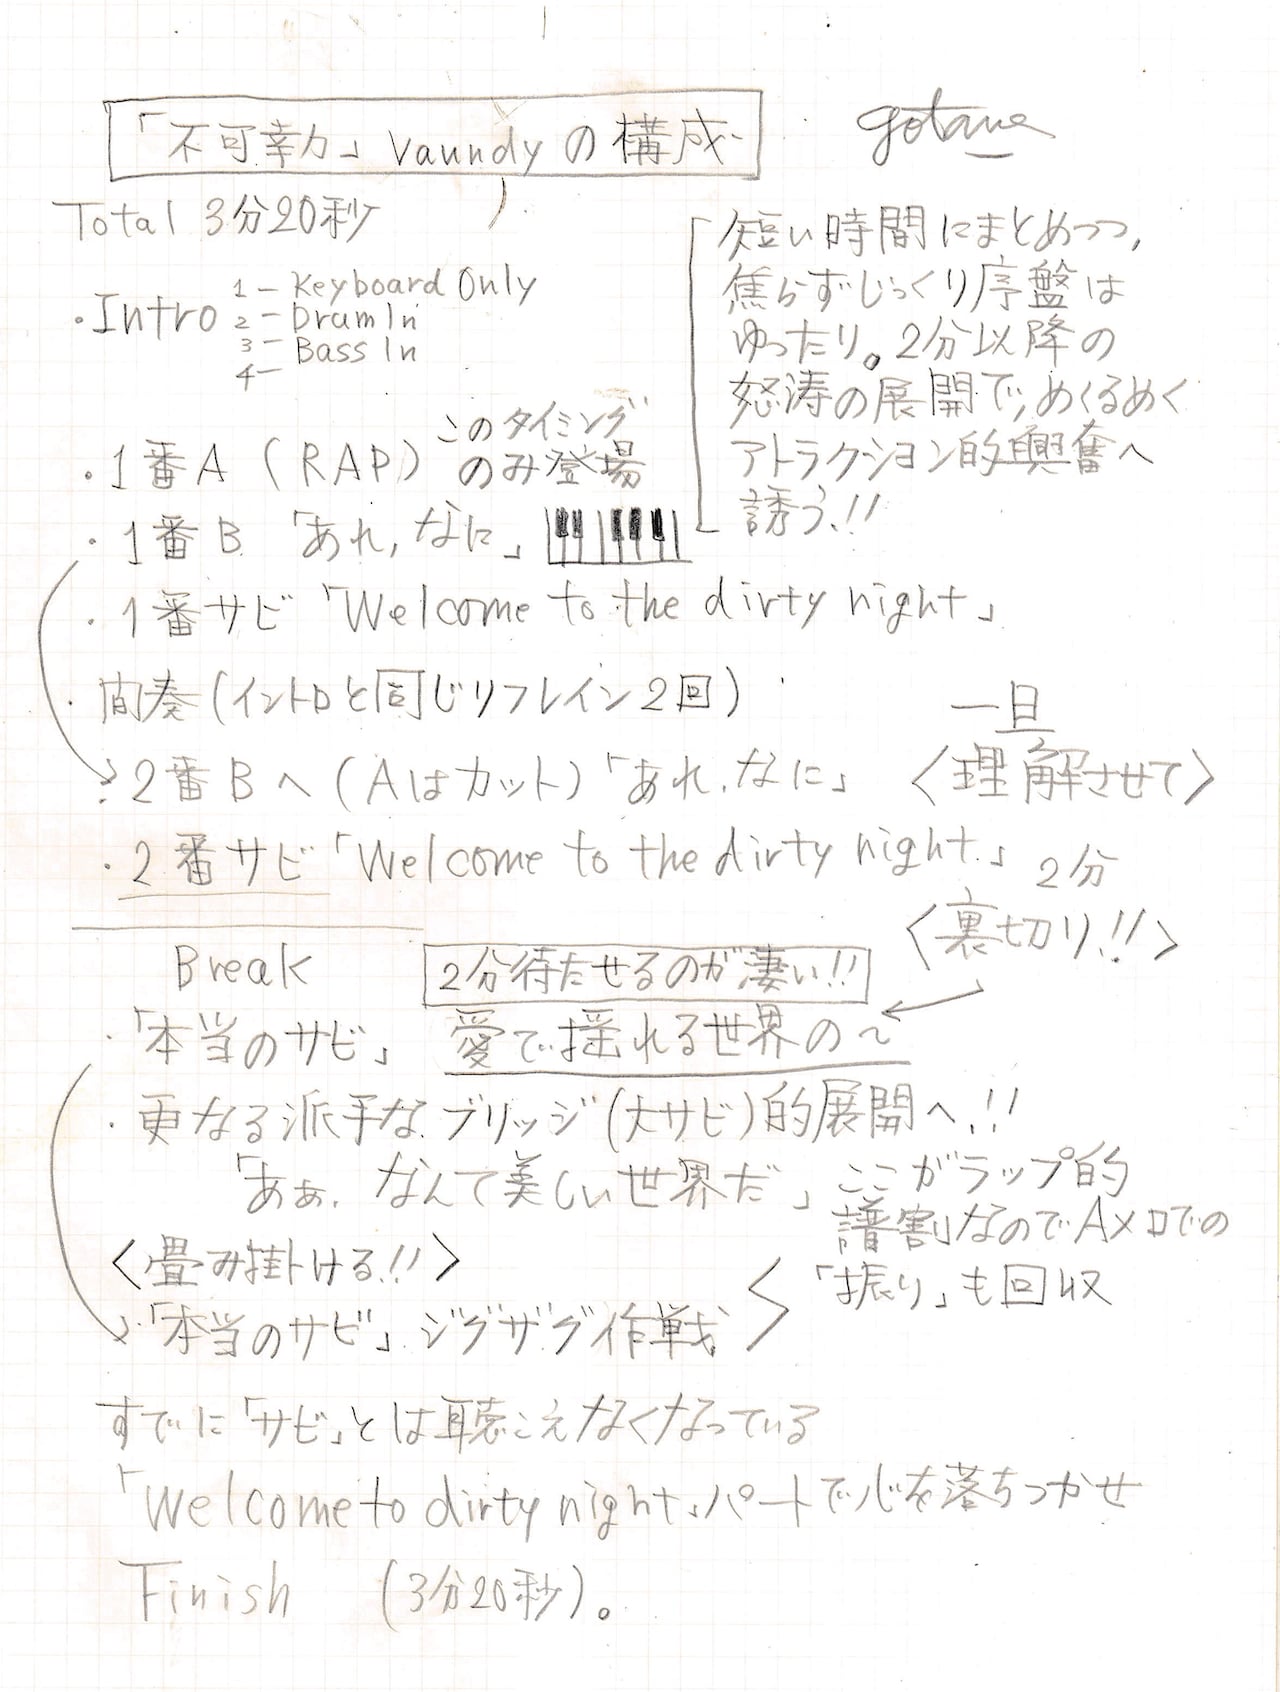 「不可幸力」Vaundyの構成
gotawa
Total 3分20秒
・Intro
1－Keyboard Only
2－Drum In
3－Bass In
4－
短い時間にまとめつつ,
焦らずじっくり序盤は
ゆったり。2分以降の
怒涛の展開で,めくるめく
アトラクション的興奮へ
誘う,!!
・1番A（RAP）このタイミング
のみ登場
・1番B「あれ,なに」
・1番サビ「Welcome to the dirty night」
・間奏(イントロと同じリフレイン2回)
・2番Bへ(Aはカット)「あれ,なに」
一旦
〈理解させて〉
・2番サビ「Welcome to the dirty night」2分
〈裏切り,!!〉
Break
2分待たせるのが凄い!!
・「本当のサビ」愛で揺れる世界の〜
・更なる派手なブリッジ(大サビ)的展開へ,!!
「あぁ,なんて美しい世界だ」ここがラップ的
譜割なのでAメロでの
「振り」も回収
〈畳み掛ける,!!〉
・「本当のサビ」ジグザグ作戦
すでに「サビ」とは聴こえなくなっている
「Welcome to dirty night」パートで心を落ちつかせ
Finish (3分20秒)。